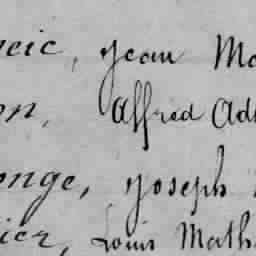 eic, Jean Ma
on, Alfred Adh
onge, Joseph
ier, Louis Math